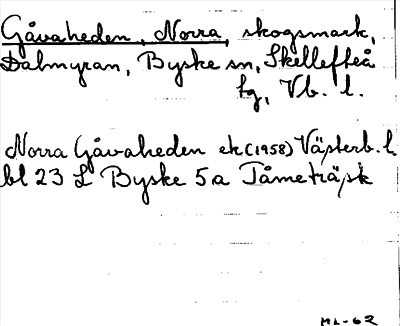 Gåvaheden, Norra, skogsmark,
Dalmyran, Byske sn, Skellefteå
tg, Vb. l.
Norra Gåvaheden ek (1958) Västerb. l.
bl 23 L Byske 5a Tåmeträsk
ML-62